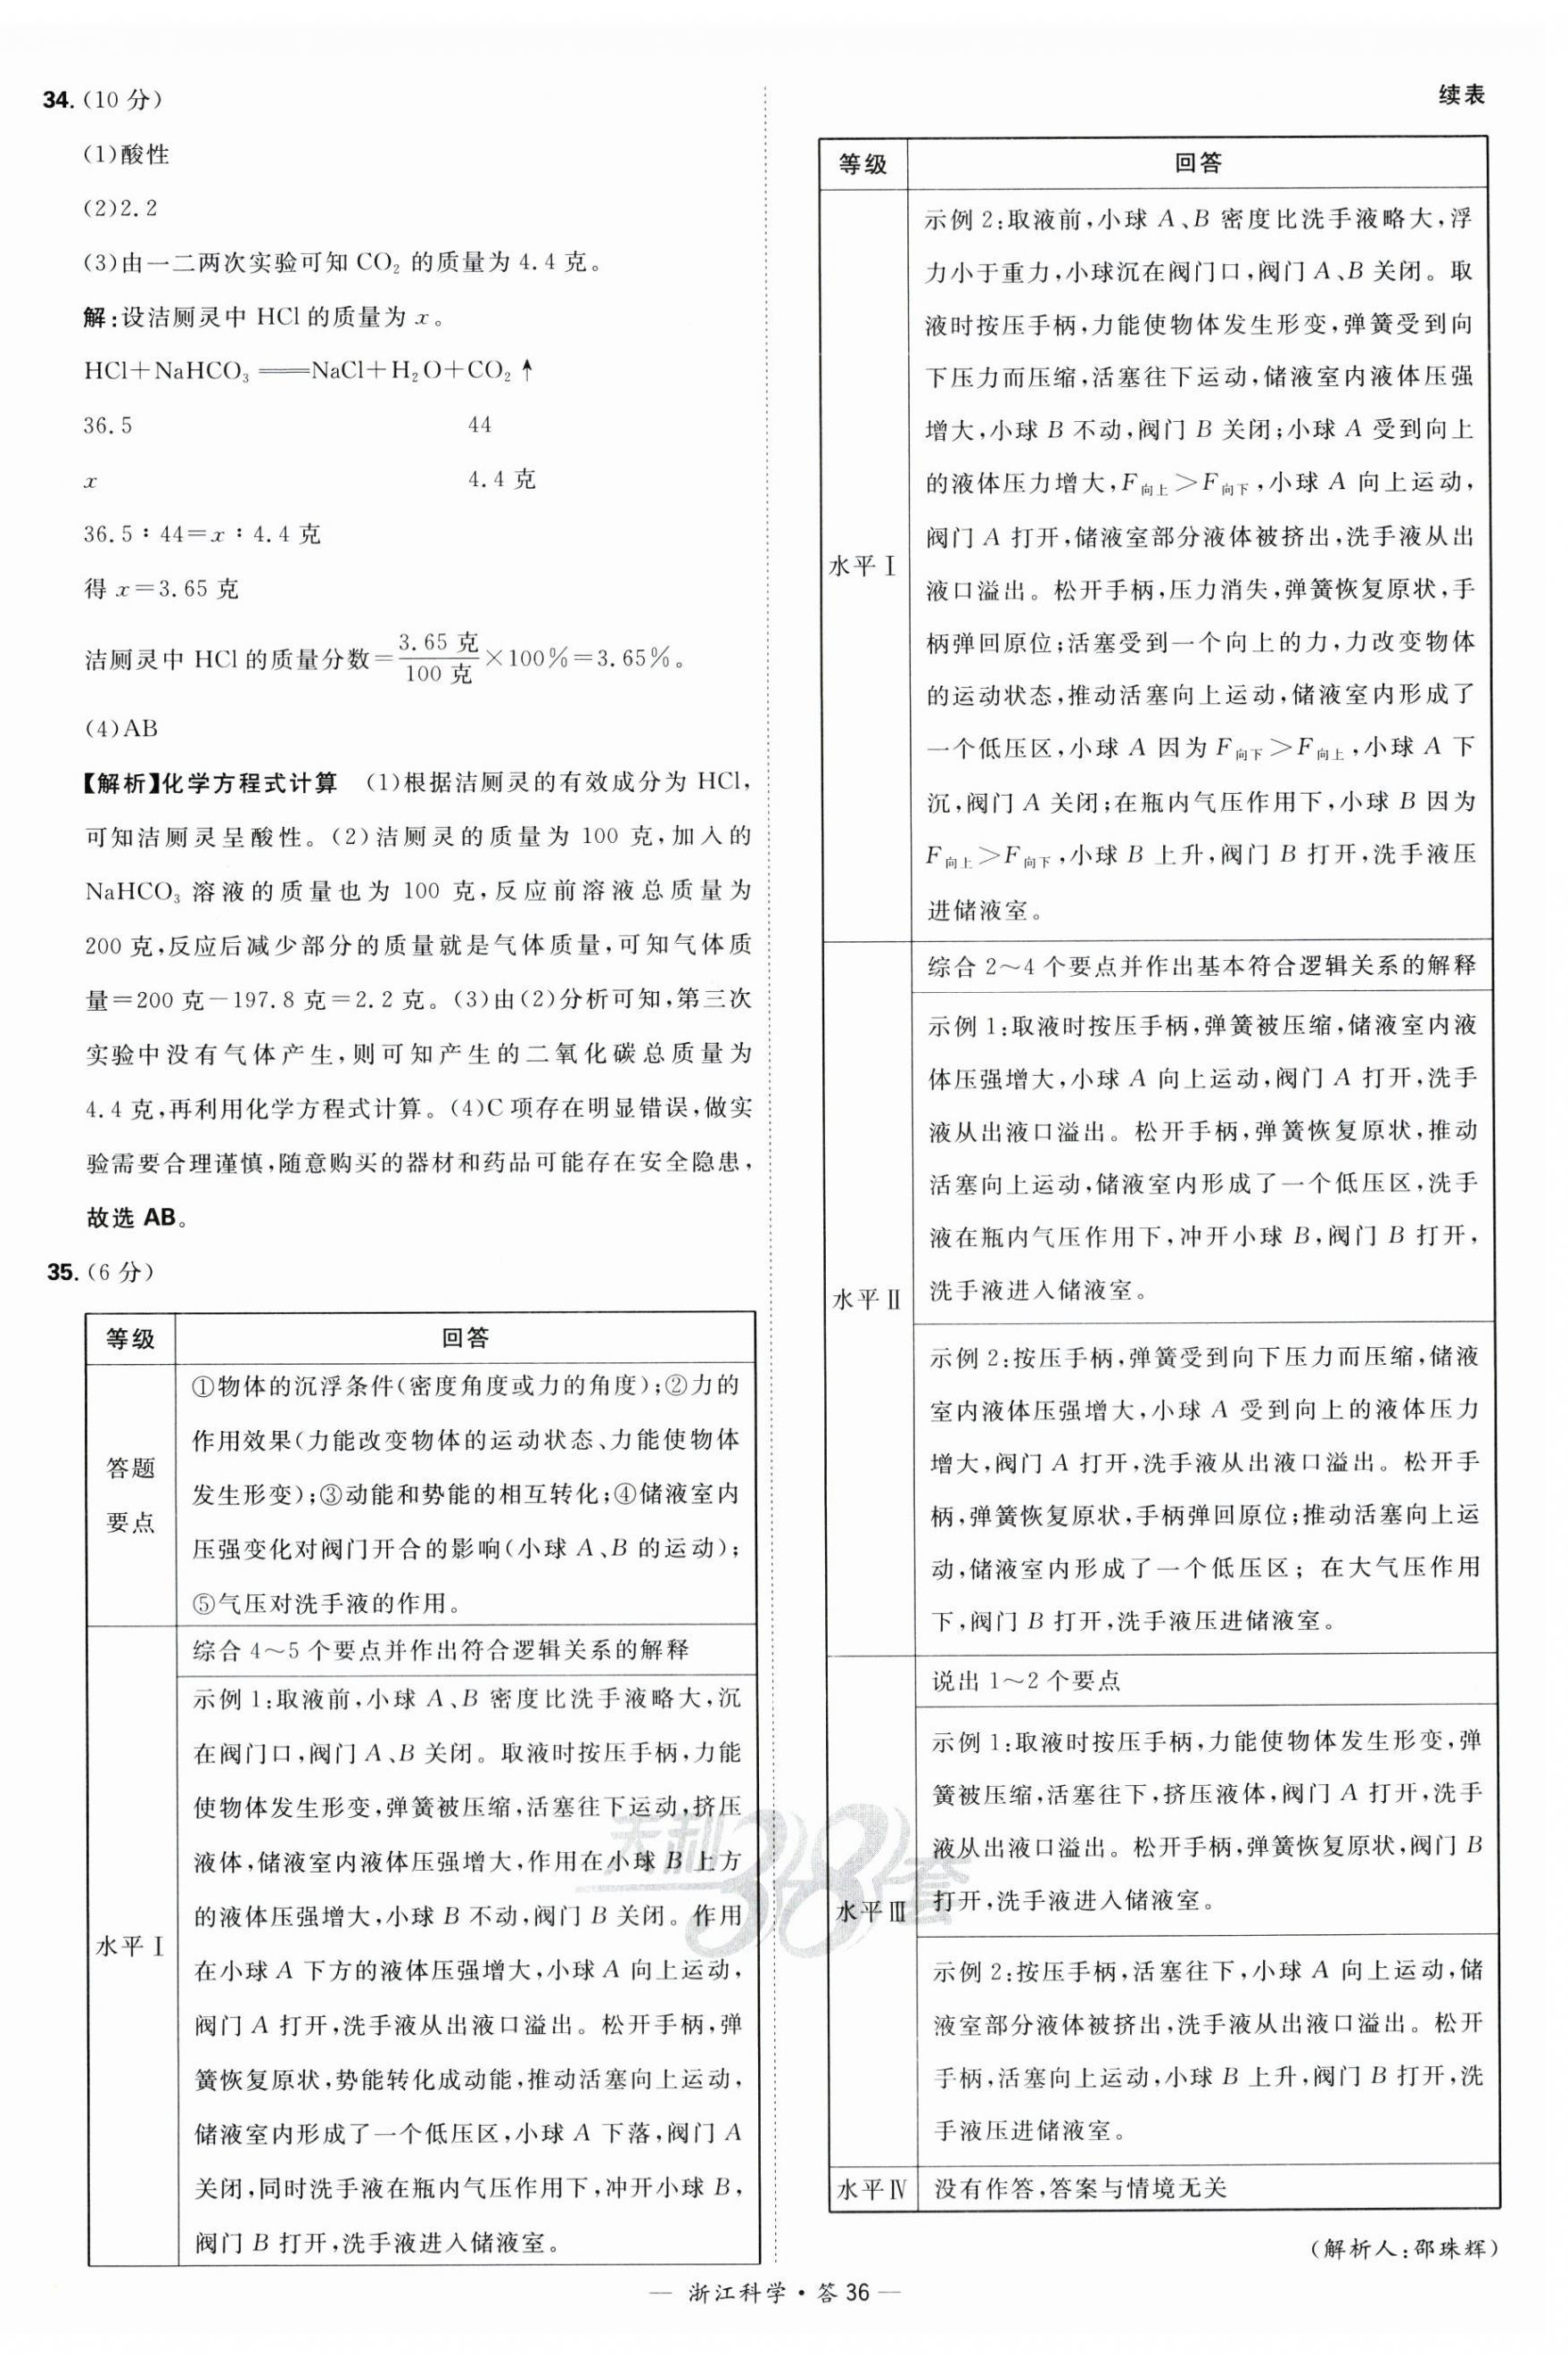 34.(10 分)
(1)酸性
(2)2.2
(3)由一二两次实验可知 CO₂ 的质量为 4.4 克。
解:设洁厕灵中 HCl 的质量为 x。
HCl+NaHCO₃ ══NaCl+H₂O+CO₂↑
36.5 44
x 4.4 克
36.5∶44=x∶4.4 克
得 x=3.65 克
洁厕灵中 HCl 的质量分数=3.65 克/100 克×100%=3.65%。
(4)AB
【解析】化学方程式计算 (1)根据洁厕灵的有效成分为 HCl,
可知洁厕灵呈酸性。(2)洁厕灵的质量为 100 克,加入的
NaHCO₃ 溶液的质量也为 100 克,反应前溶液总质量为
200 克,反应后减少部分的质量就是气体质量,可知气体质
量=200 克-197.8 克=2.2 克。(3)由(2)分析可知,第三次
实验中没有气体产生,则可知产生的二氧化碳总质量为
4.4 克,再利用化学方程式计算。(4)C 项存在明显错误,做实
验需要合理谨慎,随意购买的器材和药品可能存在安全隐患,
故选 AB。
35.(6 分)
等级 回答
答题
要点
①物体的沉浮条件(密度角度或力的角度);②力的
作用效果(力能改变物体的运动状态、力能使物体
发生形变);③动能和势能的相互转化;④储液室内
压强变化对阀门开合的影响(小球 A、B 的运动);
⑤气压对洗手液的作用。
水平Ⅰ
综合 4～5 个要点并作出符合逻辑关系的解释
示例 1:取液前,小球 A、B 密度比洗手液略大,沉
在阀门口,阀门 A、B 关闭。取液时按压手柄,力能
使物体发生形变,弹簧被压缩,活塞往下运动,挤压
液体,储液室内液体压强增大,作用在小球 B 上方
的液体压强增大,小球 B 不动,阀门 B 关闭。作用
在小球 A 下方的液体压强增大,小球 A 向上运动,
阀门 A 打开,洗手液从出液口溢出。松开手柄,弹
簧恢复原状,势能转化成动能,推动活塞向上运动,
储液室内形成了一个低压区,小球 A 下落,阀门 A
关闭,同时洗手液在瓶内气压作用下,冲开小球 B,
阀门 B 打开,洗手液进入储液室。
续表
等级 回答
水平Ⅰ
示例 2:取液前,小球 A、B 密度比洗手液略大,浮
力小于重力,小球沉在阀门口,阀门 A、B 关闭。取
液时按压手柄,力能使物体发生形变,弹簧受到向
下压力而压缩,活塞往下运动,储液室内液体压强
增大,小球 B 不动,阀门 B 关闭;小球 A 受到向上
的液体压力增大,F向上>F向下,小球 A 向上运动,
阀门 A 打开,储液室部分液体被挤出,洗手液从出
液口溢出。松开手柄,压力消失,弹簧恢复原状,手
柄弹回原位;活塞受到一个向上的力,力改变物体
的运动状态,推动活塞向上运动,储液室内形成了
一个低压区,小球 A 因为 F向下>F向上,小球 A 下
沉,阀门 A 关闭;在瓶内气压作用下,小球 B 因为
F向上>F向下,小球 B 上升,阀门 B 打开,洗手液压
进储液室。
水平Ⅱ
综合 2～4 个要点并作出基本符合逻辑关系的解释
示例 1:取液时按压手柄,弹簧被压缩,储液室内液
体压强增大,小球 A 向上运动,阀门 A 打开,洗手
液从出液口溢出。松开手柄,弹簧恢复原状,推动
活塞向上运动,储液室内形成了一个低压区,洗手
液在瓶内气压作用下,冲开小球 B,阀门 B 打开,
洗手液进入储液室。
示例 2:按压手柄,弹簧受到向下压力而压缩,储液
室内液体压强增大,小球 A 受到向上的液体压力
增大,阀门 A 打开,洗手液从出液口溢出。松开手
柄,弹簧恢复原状,手柄弹回原位;推动活塞向上运
动,储液室内形成了一个低压区; 在大气压作用
下,阀门 B 打开,洗手液压进储液室。
水平Ⅲ
说出 1～2 个要点
示例 1:取液时按压手柄,力能使物体发生形变,弹
簧被压缩,活塞往下,挤压液体,阀门 A 打开,洗手
液从出液口溢出。松开手柄,弹簧恢复原状,阀门 B
打开,洗手液进入储液室。
示例 2:按压手柄,活塞往下,小球 A 向上运动,储
液室部分液体被挤出,洗手液从出液口溢出。松开
手柄,活塞向上运动,小球 B 上升,阀门 B 打开,洗
手液压进储液室。
水平Ⅳ 没有作答,答案与情境无关
(解析人:邵珠辉)
天利38套
— 浙江科学·答 36 —